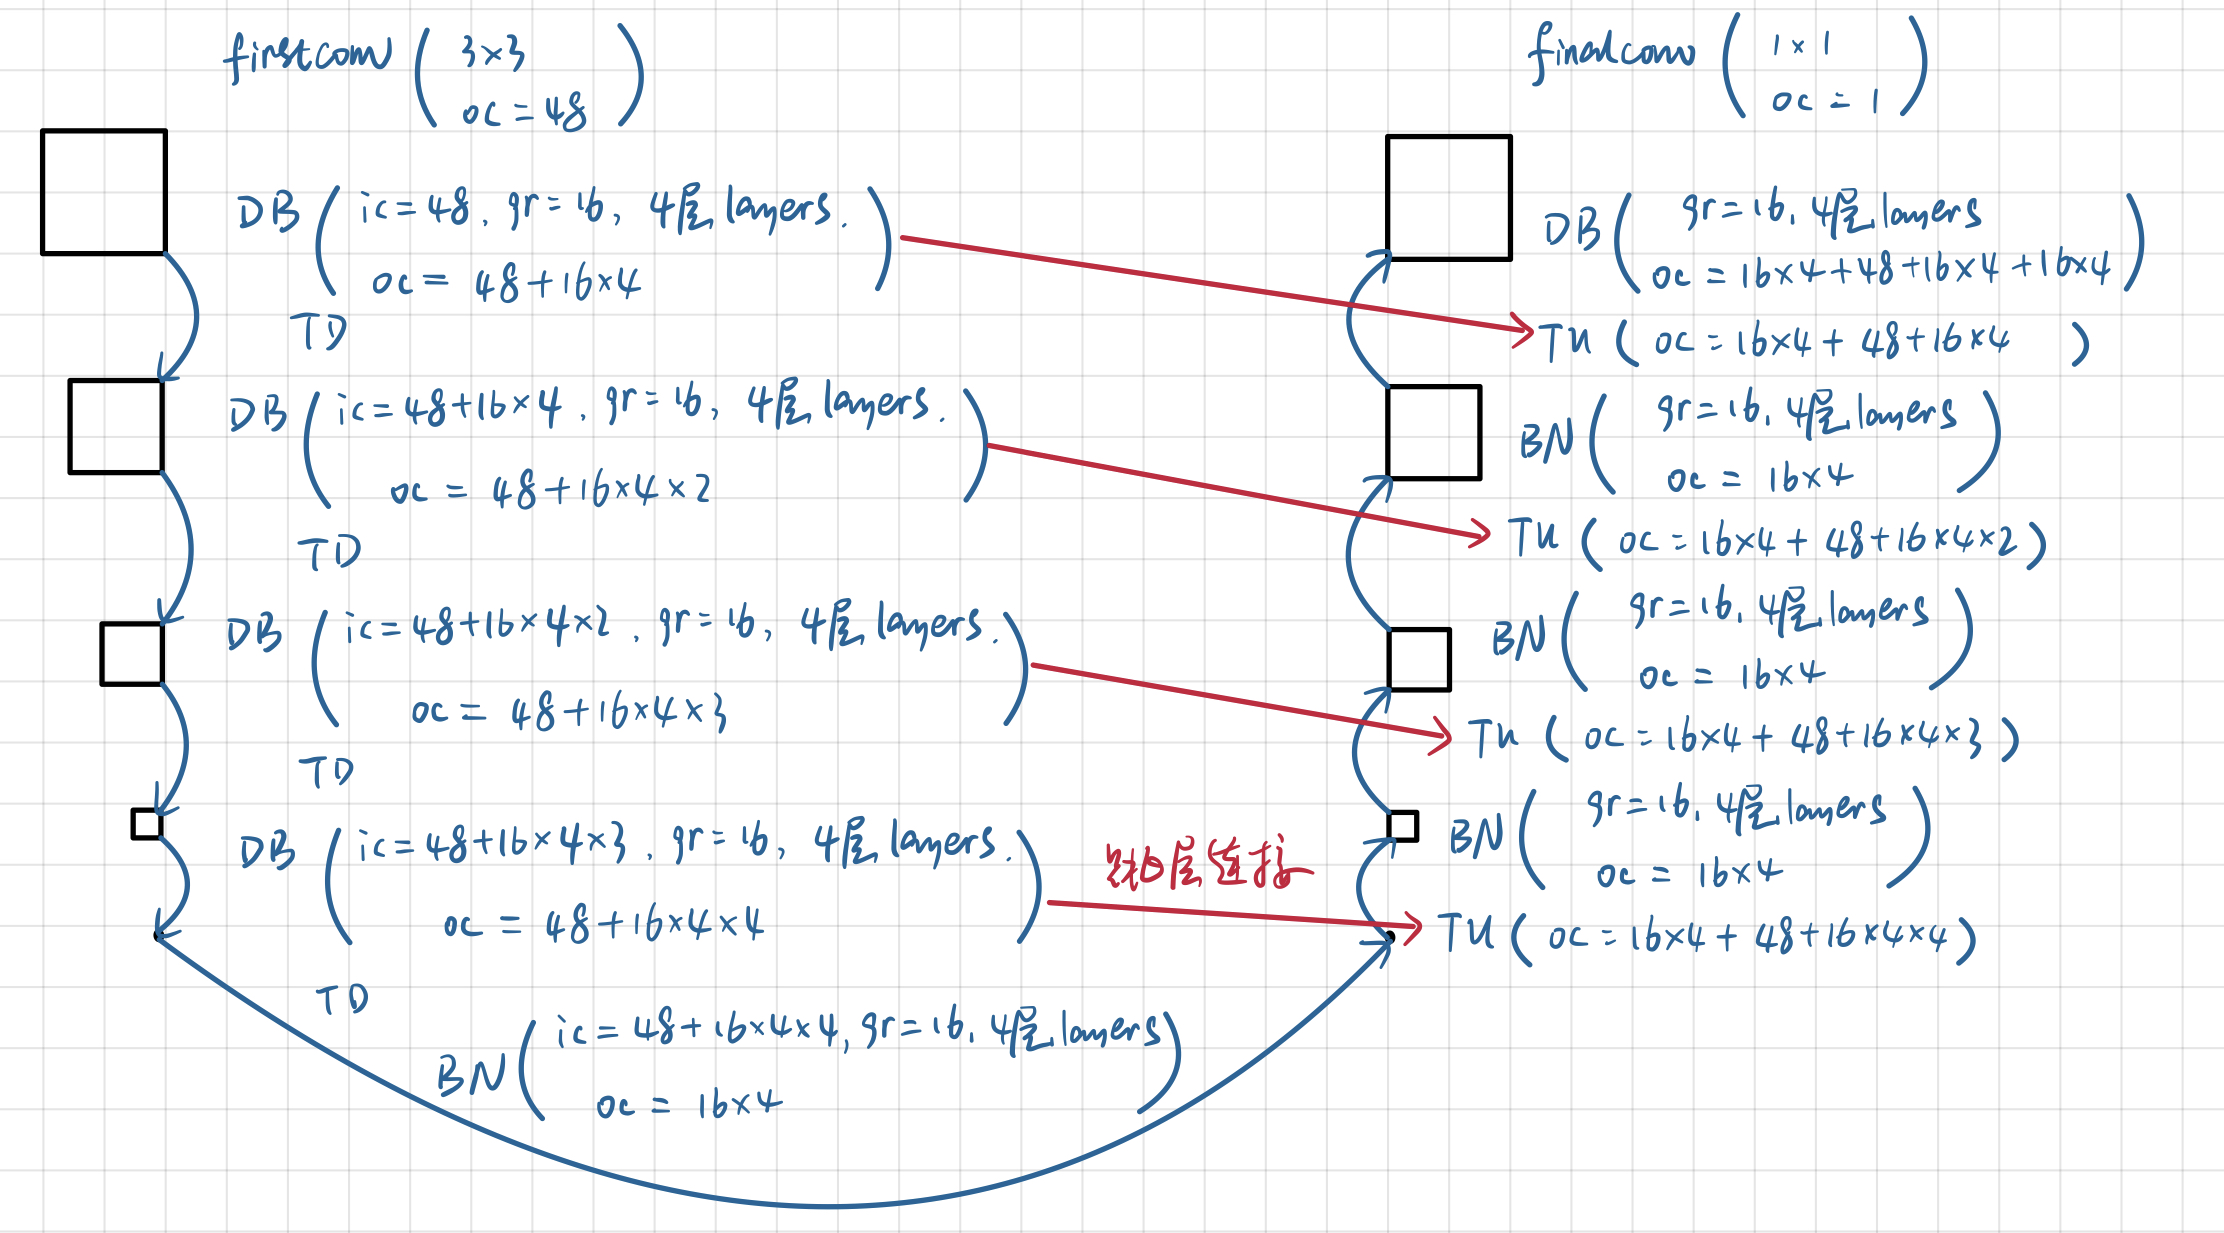 firstconv ( 3×3
oc = 48 )
DB ( ic = 48, gr = 16, 4层 layers.
oc = 48+16×4 )
TD
DB ( ic = 48+16×4, gr = 16, 4层 layers.
oc = 48+16×4×2 )
TD
DB ( ic = 48+16×4×2, gr = 16, 4层 layers.
oc = 48+16×4×3 )
TD
DB ( ic = 48+16×4×3, gr = 16, 4层 layers.
oc = 48+16×4×4 )
TD
BN ( ic = 48+16×4×4, gr = 16, 4层 layers
oc = 16×4 )
跳层连接
finalconv ( 1×1
oc = 1 )
DB ( gr = 16, 4层 layers
oc = 16×4+48+16×4+16×4 )
TU ( oc = 16×4+48+16×4 )
BN ( gr = 16, 4层 layers
oc = 16×4 )
TU ( oc = 16×4+48+16×4×2 )
BN ( gr = 16, 4层 layers
oc = 16×4 )
TU ( oc = 16×4+48+16×4×3 )
BN ( gr = 16, 4层 layers
oc = 16×4 )
TU ( oc = 16×4+48+16×4×4 )